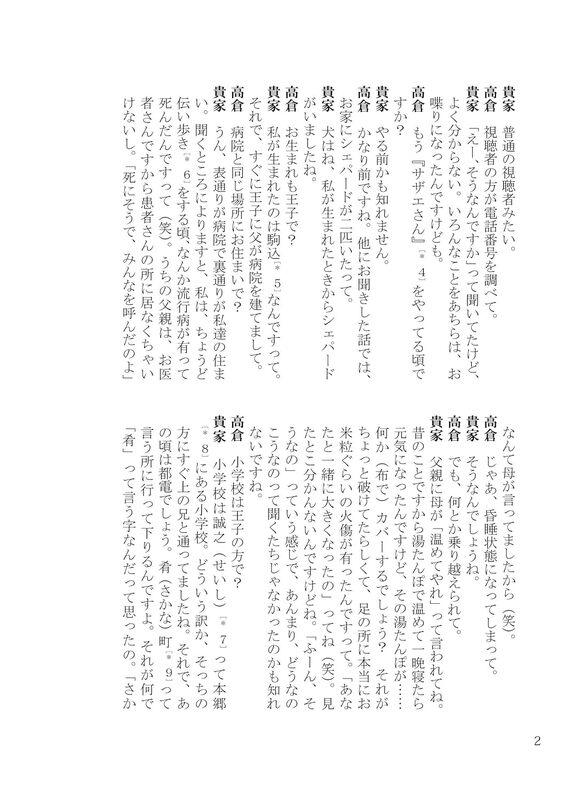 貴家　普通の視聴者みたい。
高倉　視聴者の方が電話番号を調べて。
貴家　「えー、そうなんですか」って聞いてたけど、
よく分からない。いろんなことをあちらは、お
喋りになったんですけども。
高倉　もう『サザエさん』［＊4］をやってる頃で
すか？
貴家　やる前かも知れません。
高倉　かなり前ですね。他にお聞きした話では、
お家にシェパードが二匹いたって。
貴家　犬はね、私が生まれたときからシェパード
がいましたね。
高倉　お生まれも王子で？
貴家　私が生まれたのは駒込［＊5］なんですって。
それで、すぐに王子に父が病院を建てまして。
高倉　病院と同じ場所にお住まいで？
貴家　うん、表通りが病院で裏通りが私達の住ま
い。聞くところによりますと、私は、ちょうど
伝い歩き［＊6］をする頃、なんか流行病が有って
死んだんですって（笑）。うちの父親は、お医
者さんですから患者さんの所に居なくちゃい
けないし。「死にそうで、みんなを呼んだのよ」
なんて母が言ってましたから（笑）。
高倉　じゃあ、昏睡状態になってしまって。
貴家　そうなんでしょうね。
高倉　でも、何とか乗り越えられて。
貴家　父親に母が「温めてやれ」って言われてね。
昔のことですから湯たんぽで温めて一晩寝たら
元気になったんですけど、その湯たんぽが……
何か（布で）カバーするでしょう？　それが
ちょっと破けてたらしくて、足の所に本当にお
米粒ぐらいの火傷が有ったんですって。「あな
たと一緒に大きくなったの」ってね（笑）。見
たとこ分かんないんですけどね。「ふーん、そ
うなの」っていう感じで、あんまり、どうなの
こうなのって聞くたちじゃなかったのかも知れ
ないですね。
高倉　小学校は王子の方で？
貴家　小学校は誠之（せいし）［＊7］って本郷
［＊8］にある小学校。どういう訳か、そっちの
方にすぐ上の兄と通ってましたね。それで、あ
の頃は都電でしょう。肴（さかな）町［＊9］って
言う所に行って下りるんですよ。それが何で
「肴」って言う字なんだって思ったの。「さか
2